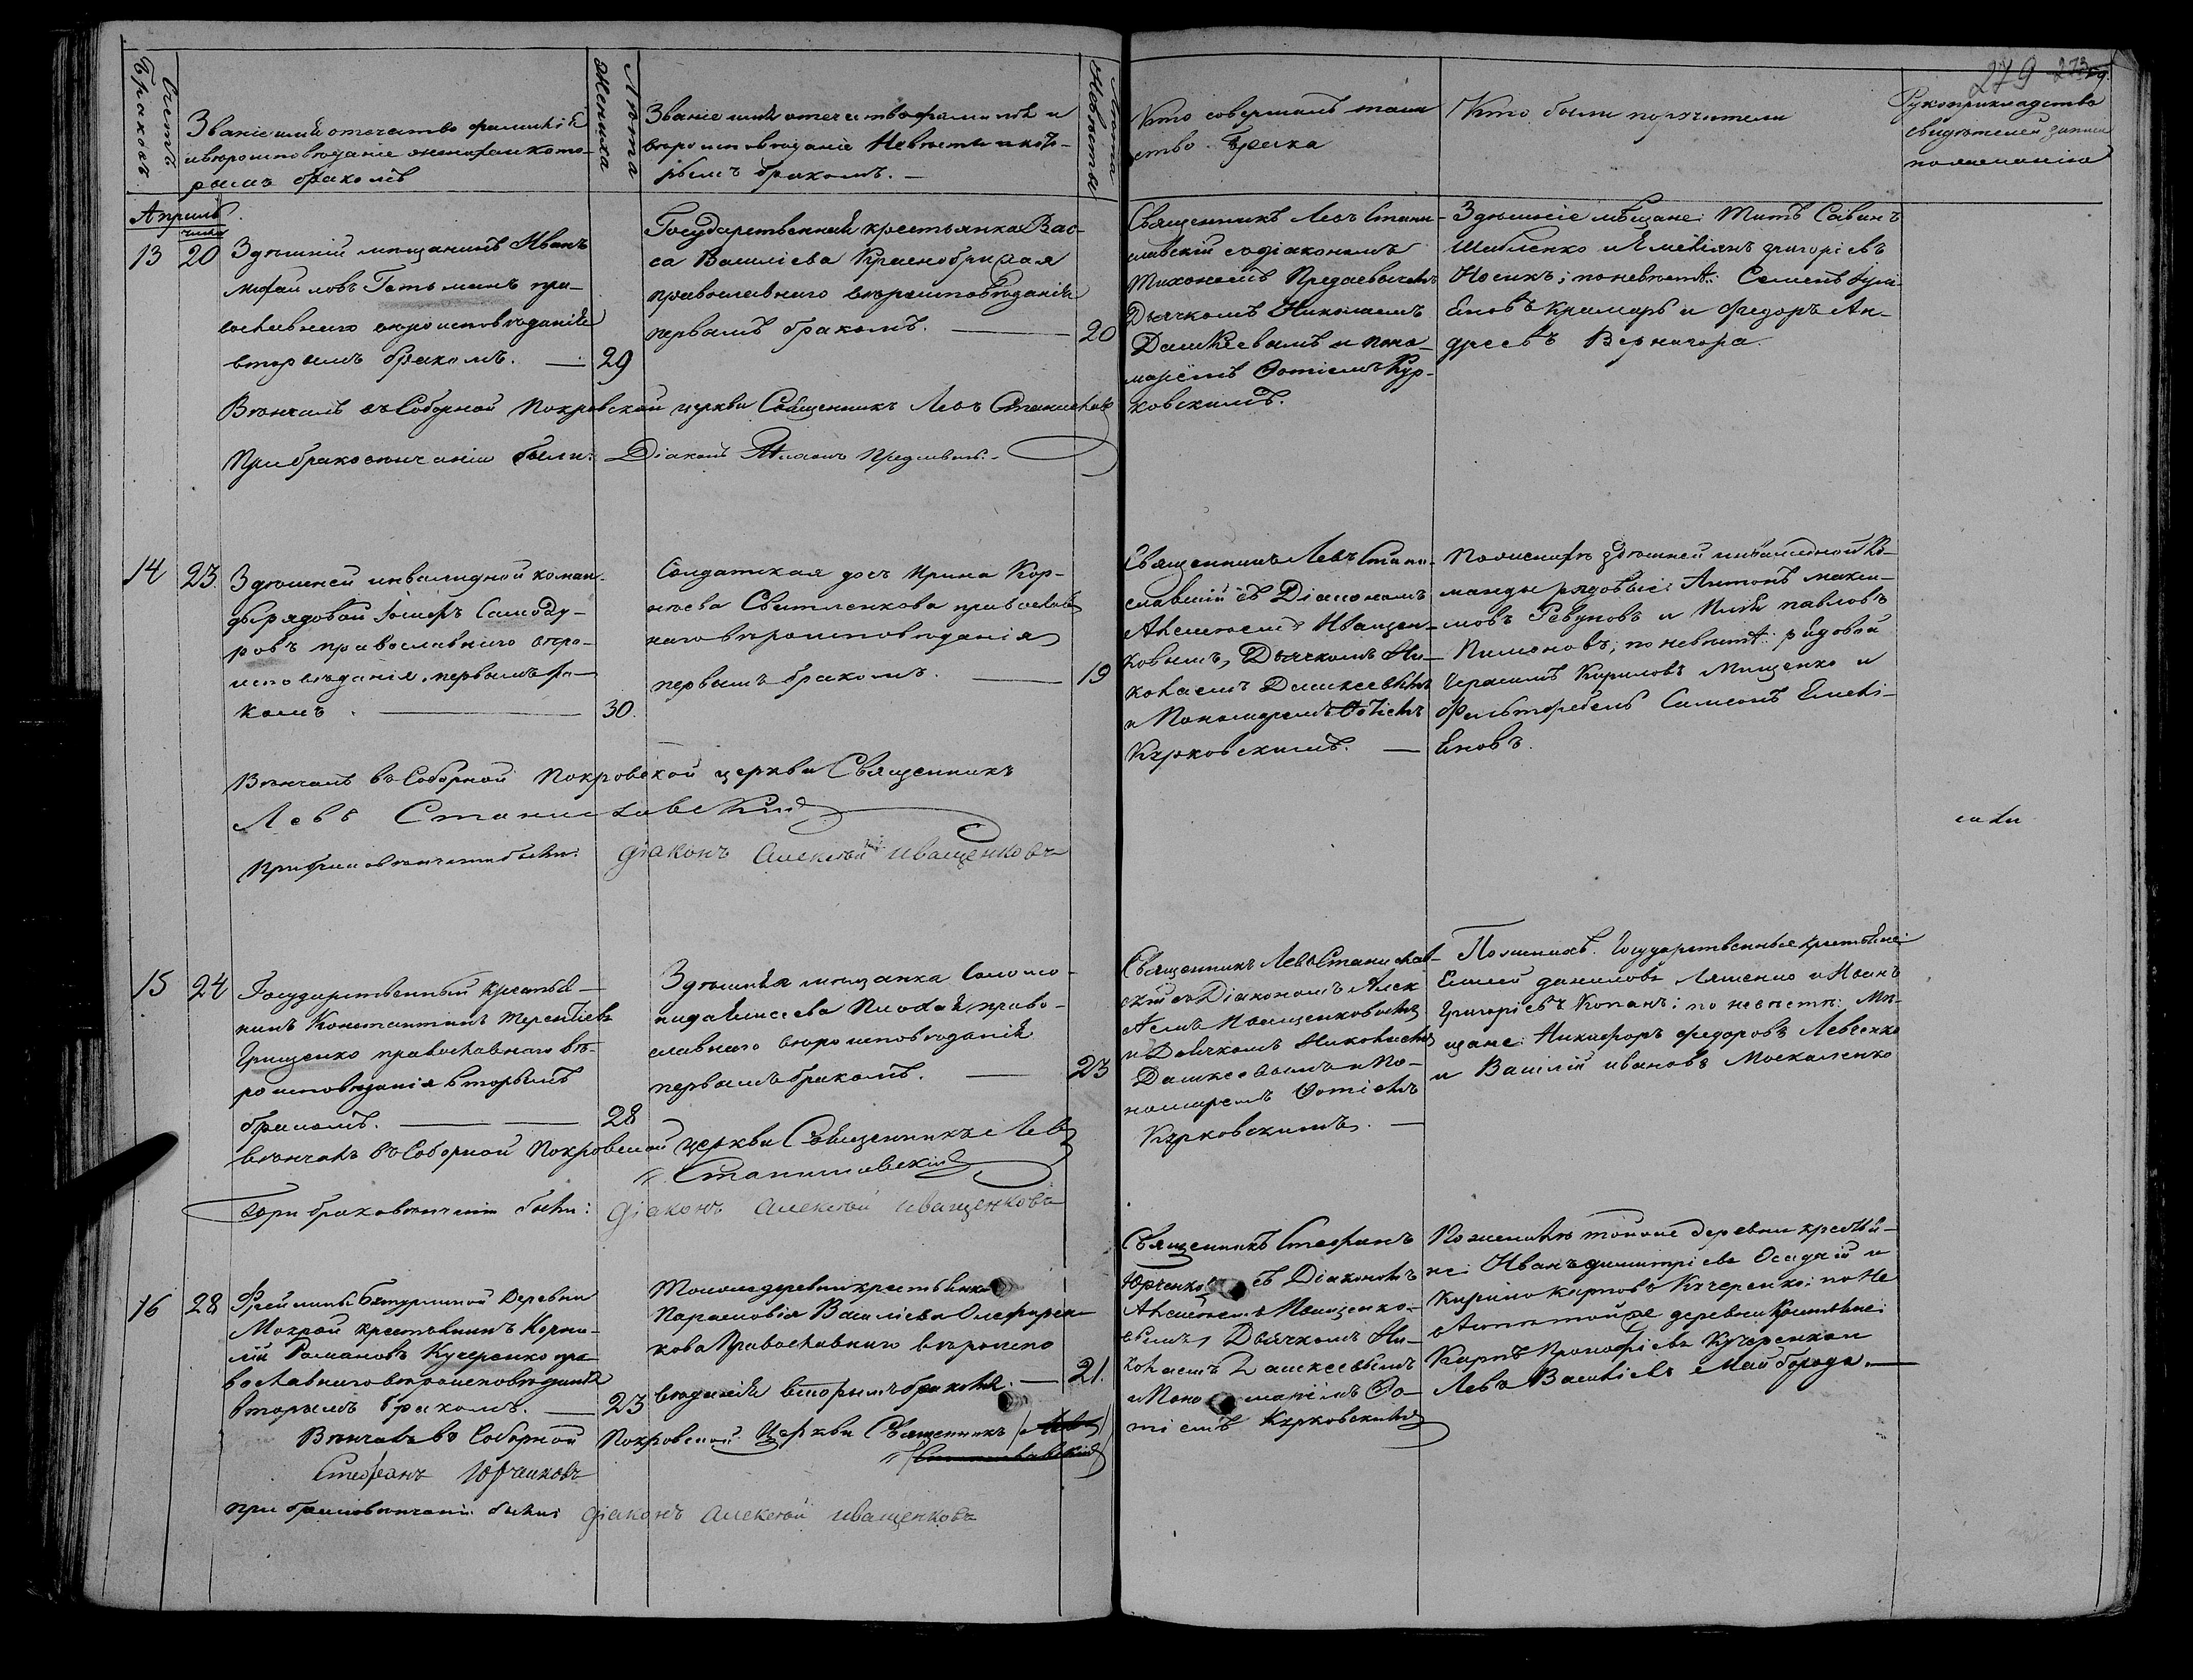 279
Счетъ Браковъ
Званіе имя отечество фамилія
и вѣроисповѣданіе жениха и кото-
рымъ бракомъ
Лѣта Жениха
Званіе имя отечество фамилія и
вѣроисповѣданіе Невѣсты и кото-
рымъ бракомъ. —
Лѣта Невѣсты
Кто совершалъ таин
ство Брака
Кто были поручители
Рукоприкладство
свидѣтелей записи
по желанію
Апрель
числа
13 20
Здѣшній мѣщанинъ Иванъ
Михайловъ Гетьманъ пра-
вославнаго вѣроисповѣданія
вторымъ бракомъ. — 29
Государственная крестьянка Вас-
са Василіева Краснобрижая
православнаго вѣроисповѣданія
первымъ бракомъ. — 20
Священникъ Левъ Стани-
славскій съ діакономъ
Тихономъ Предаевичемъ
Дьячкомъ Николаемъ
Дашкеевымъ и поно-
марёмъ Фотіемъ Кур-
ковскимъ.
Здѣшніе мѣщане: Титъ Савинъ
Шабленко и Емеліянъ григоріевъ
Носикъ; по невѣстѣ: Семенъ
еновъ крамарь и Федоръ Ан-
дреевъ Вернигора.
Вѣнчалъ въ Соборной Покровской церкви Священникъ Левъ Станиславскій
При браковѣнчаніи были: Діаконъ Тихонъ Предаевичь. -
14 23.
Здѣшней инвалидной коман-
ды рядовой Самоду-
ровъ православнаго вѣро-
исповѣданія, первымъ бра-
комъ. — 30.
Солдатская дочь Ирина Кор-
нѣева Свитленкова православ
наго вѣроисповѣданія
первымъ бракомъ. — 19
Священникъ Левъ Стани-
славскій съ Діакономъ
Алексѣемъ Иващен-
ковымъ, Дьячкомъ Ни-
колаемъ Дашкеевымъ
и Пономаремъ Фотіемъ
Курковскимъ. —
По женихѣ здѣшней инвалидной Ко-
манды рядовыі: Антонъ макси-
мовъ Ревуновъ и Илья павловъ
Пимоновъ; по невѣстѣ: рядовой
Герасимъ Кириловъ Мищенко и
Фельтфебель Симеонъ Емелі-
еновъ.
Вѣнчалъ въ Соборной Покровской церкви Священникъ
Левъ Станиславскій
При браковѣнчаніи были: діаконъ Алексѣй Иващенковъ
15 24
Государственный крестья-
нинъ Константинъ Терентіевъ
Грищенко православнаго вѣ-
роисповѣданія вторымъ
бракомъ. — 28
Здѣшняя мѣщанка Соломо-
нида Елисеева право-
славнаго вѣроисповѣданія
первымъ бракомъ. — 23
Священникъ Левъ Станислав
скій съ Діакономъ Алек
сѣемъ Иващенковымъ
и Дьячкомъ Николаемъ
Дашкеевымъ и По-
номаремъ Фотіемъ
Курковскимъ. —
По женихѣ. Государственные крестьяне:
Елисей даниловъ Ляшенко и Иванъ
Григоріевъ Копанъ: по невѣстѣ: Мѣ-
щане: Никифоръ федоровъ Левченко
и Василій ивановъ Москаленко
вѣнчалъ въ Соборной Покровской церкви Священникъ Левъ
Станиславскій
При браковѣнчаніи были: діаконъ Алексѣй Иващенковъ
16 28
Деревни
Мокрой крестьянинъ Корни-
лій Романовъ Кучеренко пра-
вославнаго вѣроисповѣданія
вторымъ бракомъ. — 23
Тоиже деревни крестьянка
Парасковія Василіева Олефирен-
кова Православнаго вѣроиспо
вѣданія вторымъ бракомъ. — 21.
Священникъ Стефанъ
Юрченко съ Діакономъ
Алексѣемъ Иващенко-
вымъ, Дьячкомъ Ни-
колаемъ Дашкеевымъ
и Поно марёмъ Фо-
тіемъ Курковскимъ
По женихѣ тоиже деревни крестья-
не: Иванъ димитріевъ Осадчій и
Кирило карповъ Кучеренко; по Не
вѣстѣ тойже деревни Крестьяне:
Карпъ Прокофіевъ Кучеренко и
Левъ Василіевъ Майборода. —
Вѣнчалъ въ Соборной Покровской Церкви Священникъ Левъ
Станиславскій
Стефанъ Юрченковъ
при браковѣнчаніи были: діаконъ Алексѣй Иващенковъ